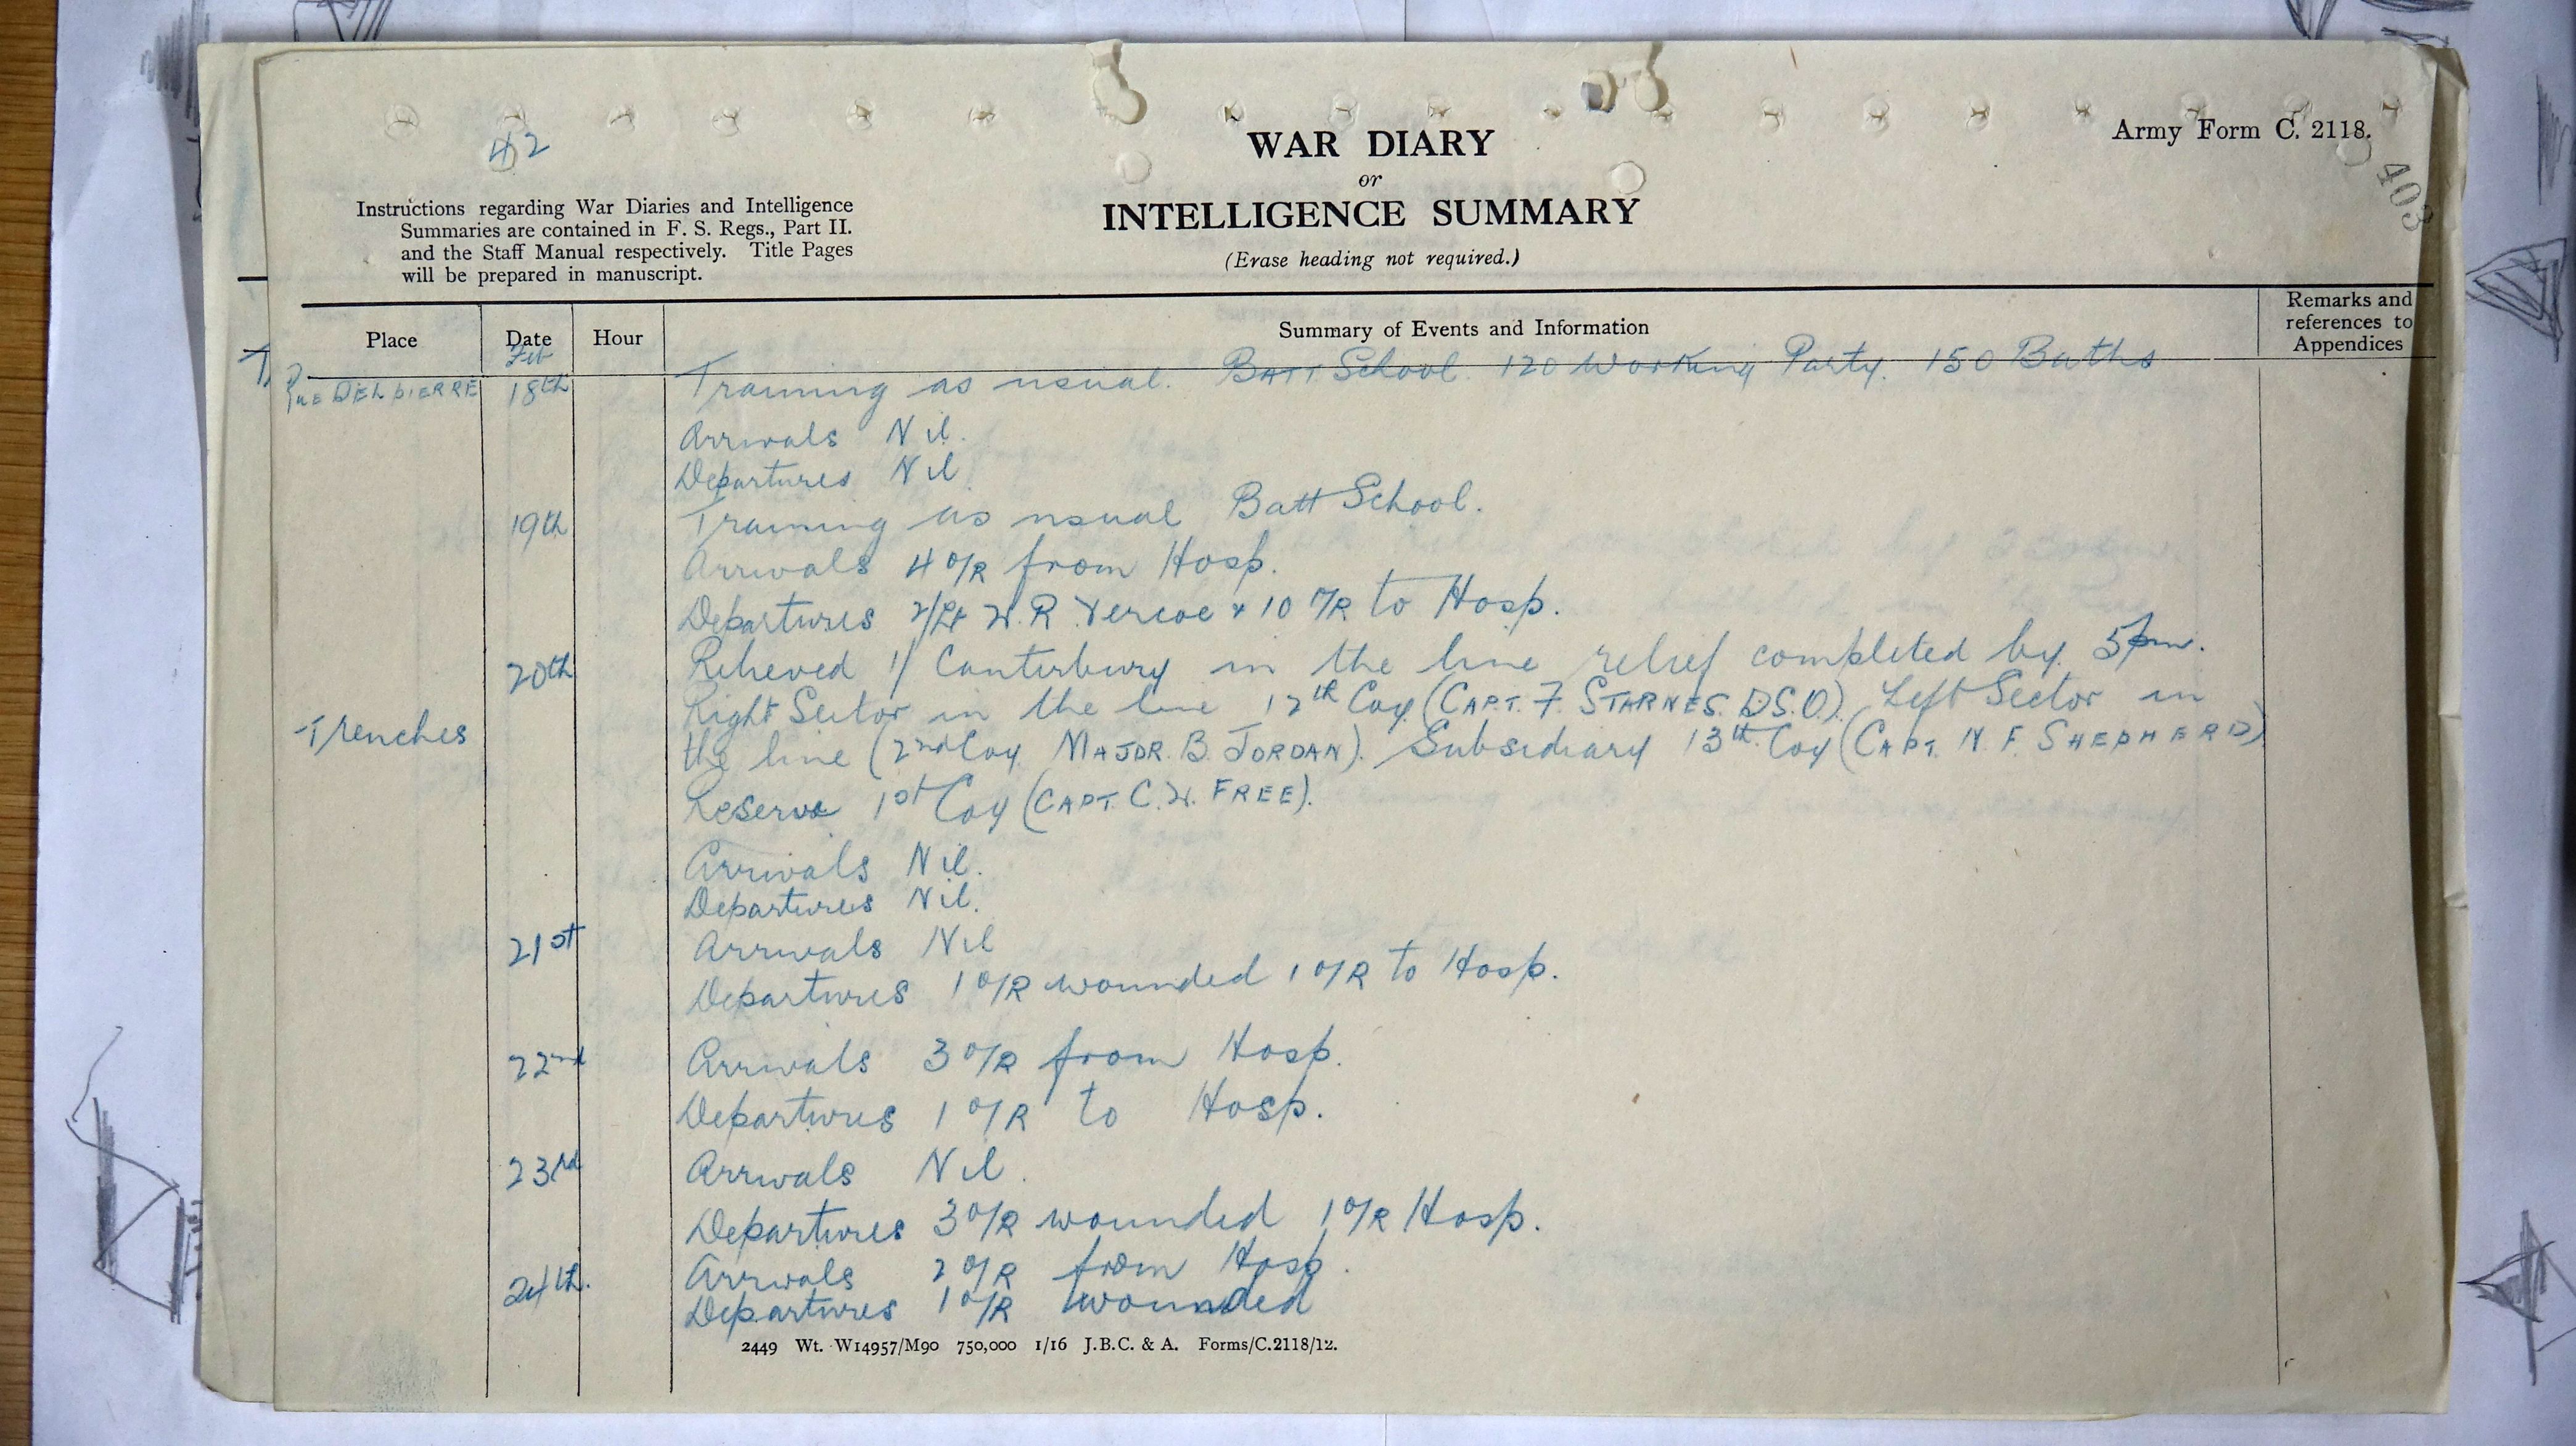 42
WAR DIARY
or
INTELLIGENCE SUMMARY
(Erase heading not required.)
Army Form C. 2118.
403
Instructions regarding War Diaries and Intelligence
Summaries are contained in F. S. Regs., Part II.
and the Staff Manual respectively. Title Pages
will be prepared in manuscript.
Place Date Hour Summary of Events and Information Remarks and references to Appendices
Feb
Rue DELPIERRE 18th Training as usual. BATT School. 120 Working Party. 150 Baths
Arrivals Nil.
Departures Nil
19th Training as usual Batt School.
Arrivals 4 O/R from Hosp.
Departures 2/Lt W. R. Vercoe + 10 O/R to Hosp.
20th Relieved 1/ Canterbury in the line relief completed by 5pm.
Right Sector in the line 12th Coy (CAPT. F. STARNES. D.S.O.) Left Sector in
Trenches the line (2nd Coy MAJOR. B. JORDAN). Subsidiary 13th Coy (CAPT. N. F. SHEPHERD)
Reserve 1st Coy (CAPT. C. W. FREE).
Arrivals Nil.
Departures Nil.
21st Arrivals Nil
Departures 1 O/R wounded 1 O/R to Hosp.
22nd Arrivals 3 O/R from Hosp.
Departures 1 O/R to Hosp.
23rd Arrivals Nil.
Departures 3 O/R wounded 1 O/R Hosp.
24th. Arrivals 2 O/R from Hosp.
Departures 1 O/R wounded
2449 Wt. W14957/M90 750,000 1/16 J.B.C. & A. Forms/C.2118/12.